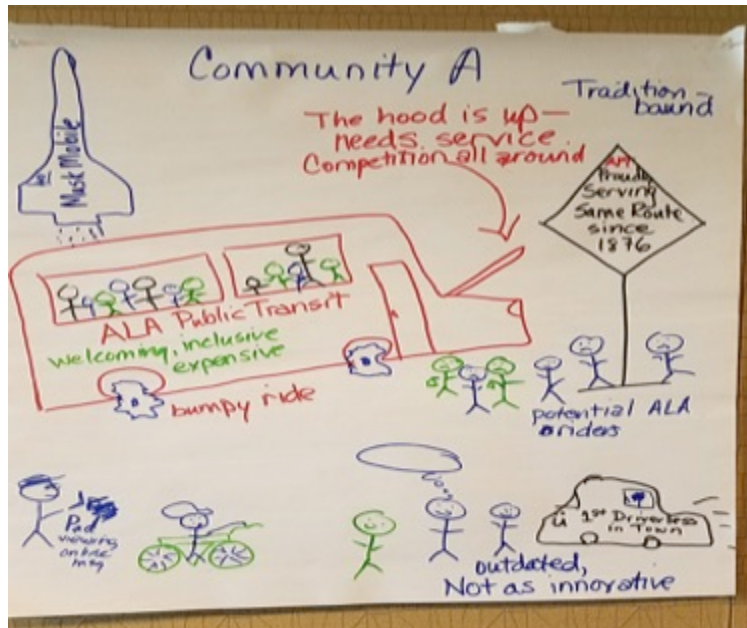 Community A
Tradition-
bound
The hood is up—
needs service.
Competition all around
Musk Mobile
Proudly
Serving
Same Route
since
1876
ALA Public Transit
welcoming, inclusive
expensive
bumpy ride
potential ALA
riders
Pad
viewing
online
1st Driverless
in Town
outdated,
Not as innovative